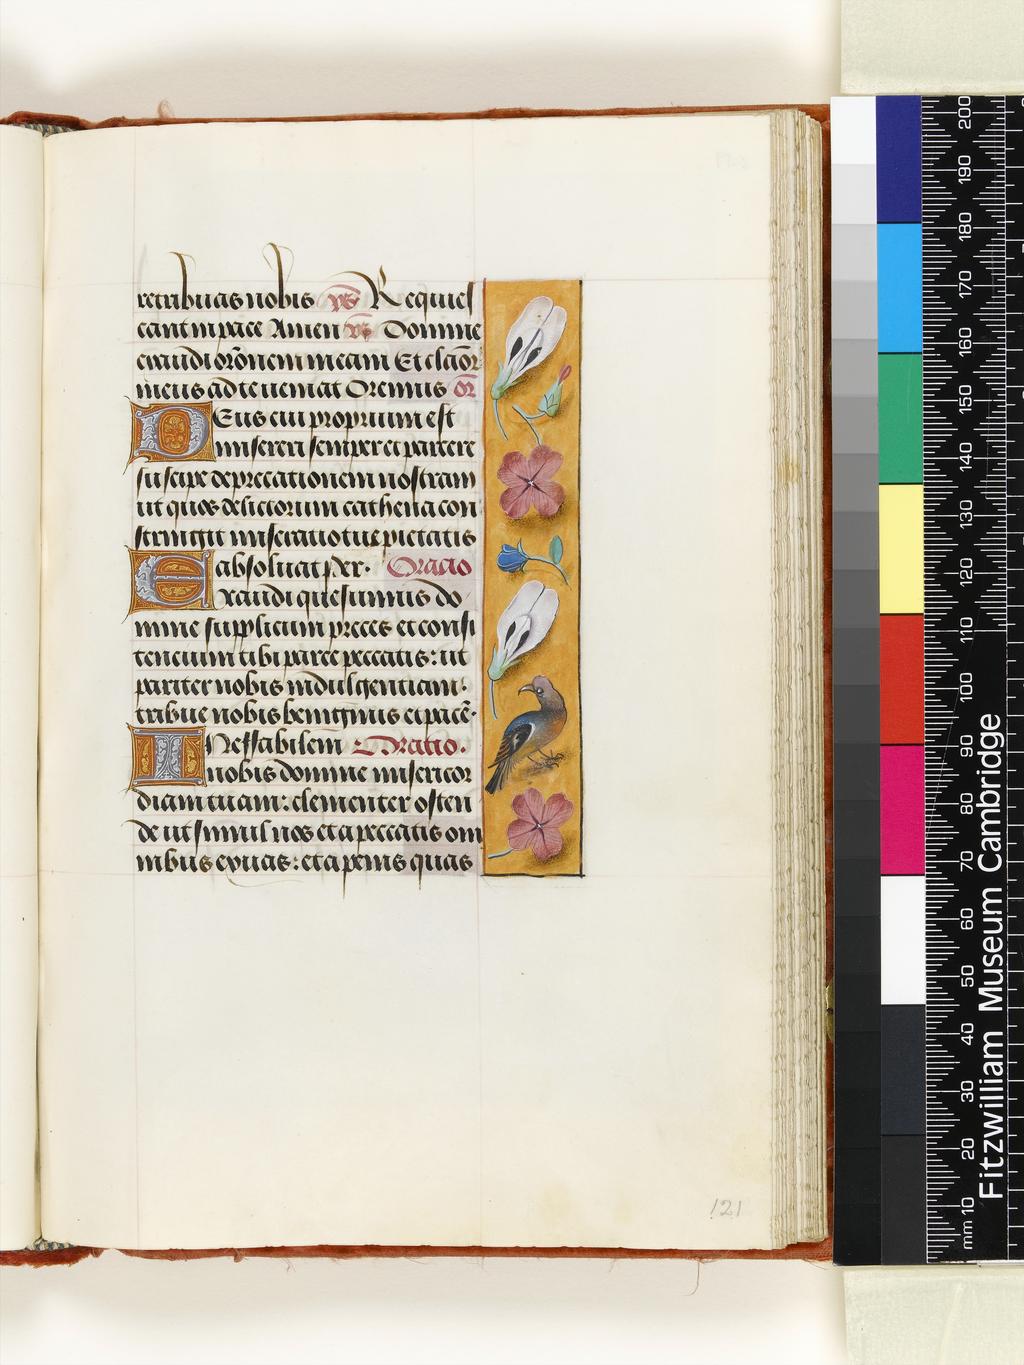 retribuas nobis v̄s Requies
cant in pace Amen v̄s Domine
exaudi or̄onem meam Et clāor
meus ad te ueniat Oremus or̄
Deus cui proprium est
misereri semper et parcere
suscipe deprecationem nostram
ut quos delictorum cathena con
stringit miseratio tue pietatis
absoluat per. Oratio
Exaudi quesumus do
mine supplicum preces et confi
tencium tibi parce peccatis: ut
pariter nobis indulgentiam.
tribue nobis benignus et pacē.
INeffabilem Oratio.
nobis domine misericor
diam tuam: clementer osten
de ut simul nos et a peccatis om
nibus exuas: et a penis quas
121
Fitzwilliam Museum Cambridge
mm 10 20 30 40 50 60 70 80 90 100 110 120 130 140 150 160 170 180 190 200